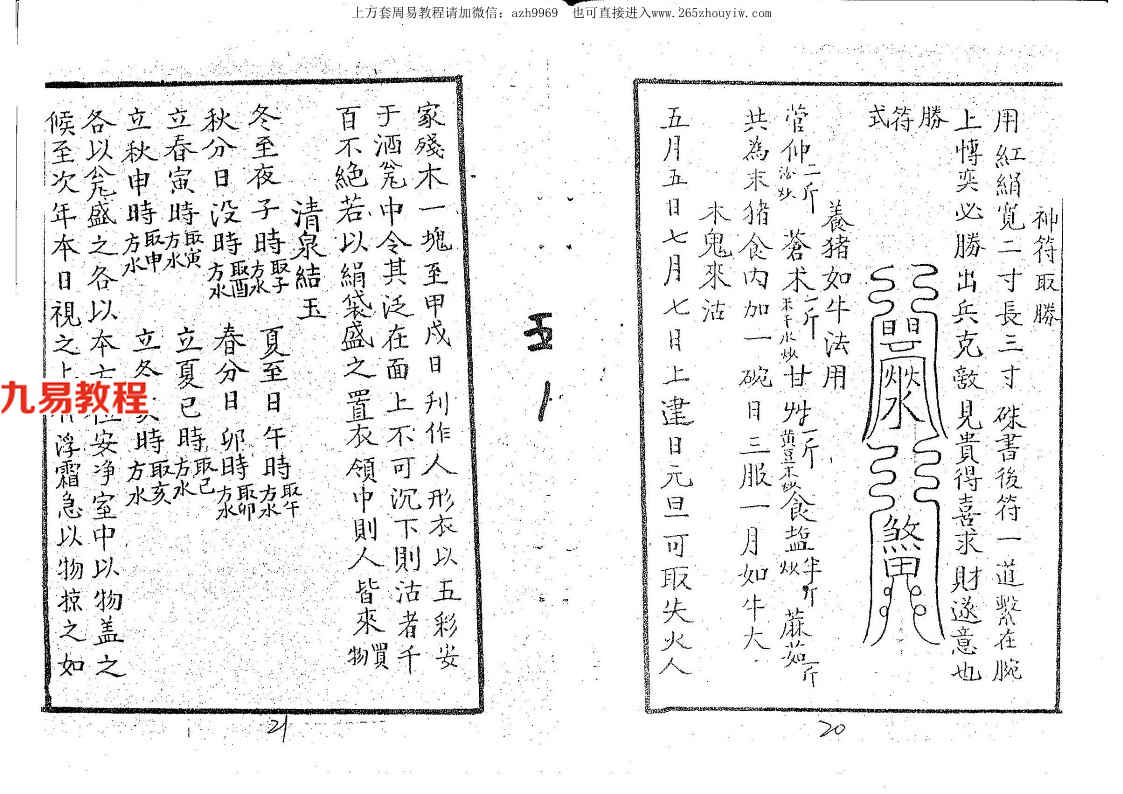 上方套周易教程请加微信：azh9969 也可直接进入www.265zhouyiw.com
神符取勝
用紅絹寬二寸長三寸硃書後符一道繫在腕
上慱奕必勝出兵克敵見貴得喜求財遂意也
勝符式
養猪如牛法用
管仲二斤 蒼术一斤米干水炒甘艸一斤黄豆水炒食塩炒半斤蔴茹一斤
共為末猪食内加一碗日三服一月如牛大
木鬼來沽
五月五日七月七日上建日元旦可取失火人
20
五
家殘木一塊至甲戌日刋作人形衣以五彩安
于酒瓮中令其泛在面上不可沉下則沽者千
百不絶若以絹袋盛之置衣領中則人皆來買物
清泉結玉
冬至夜子時取子方水 夏至日午時取午方水
秋分日没時取酉方水 春分日卯時取卯方水
立春寅時取寅方水 立夏巳時取巳方水
立秋申時取申方水 立冬 時取亥方水
各以瓮盛之各以本 安净室中以物盖之
候至次年本日視之上 浮霜急以物掠之如
21
九易教程